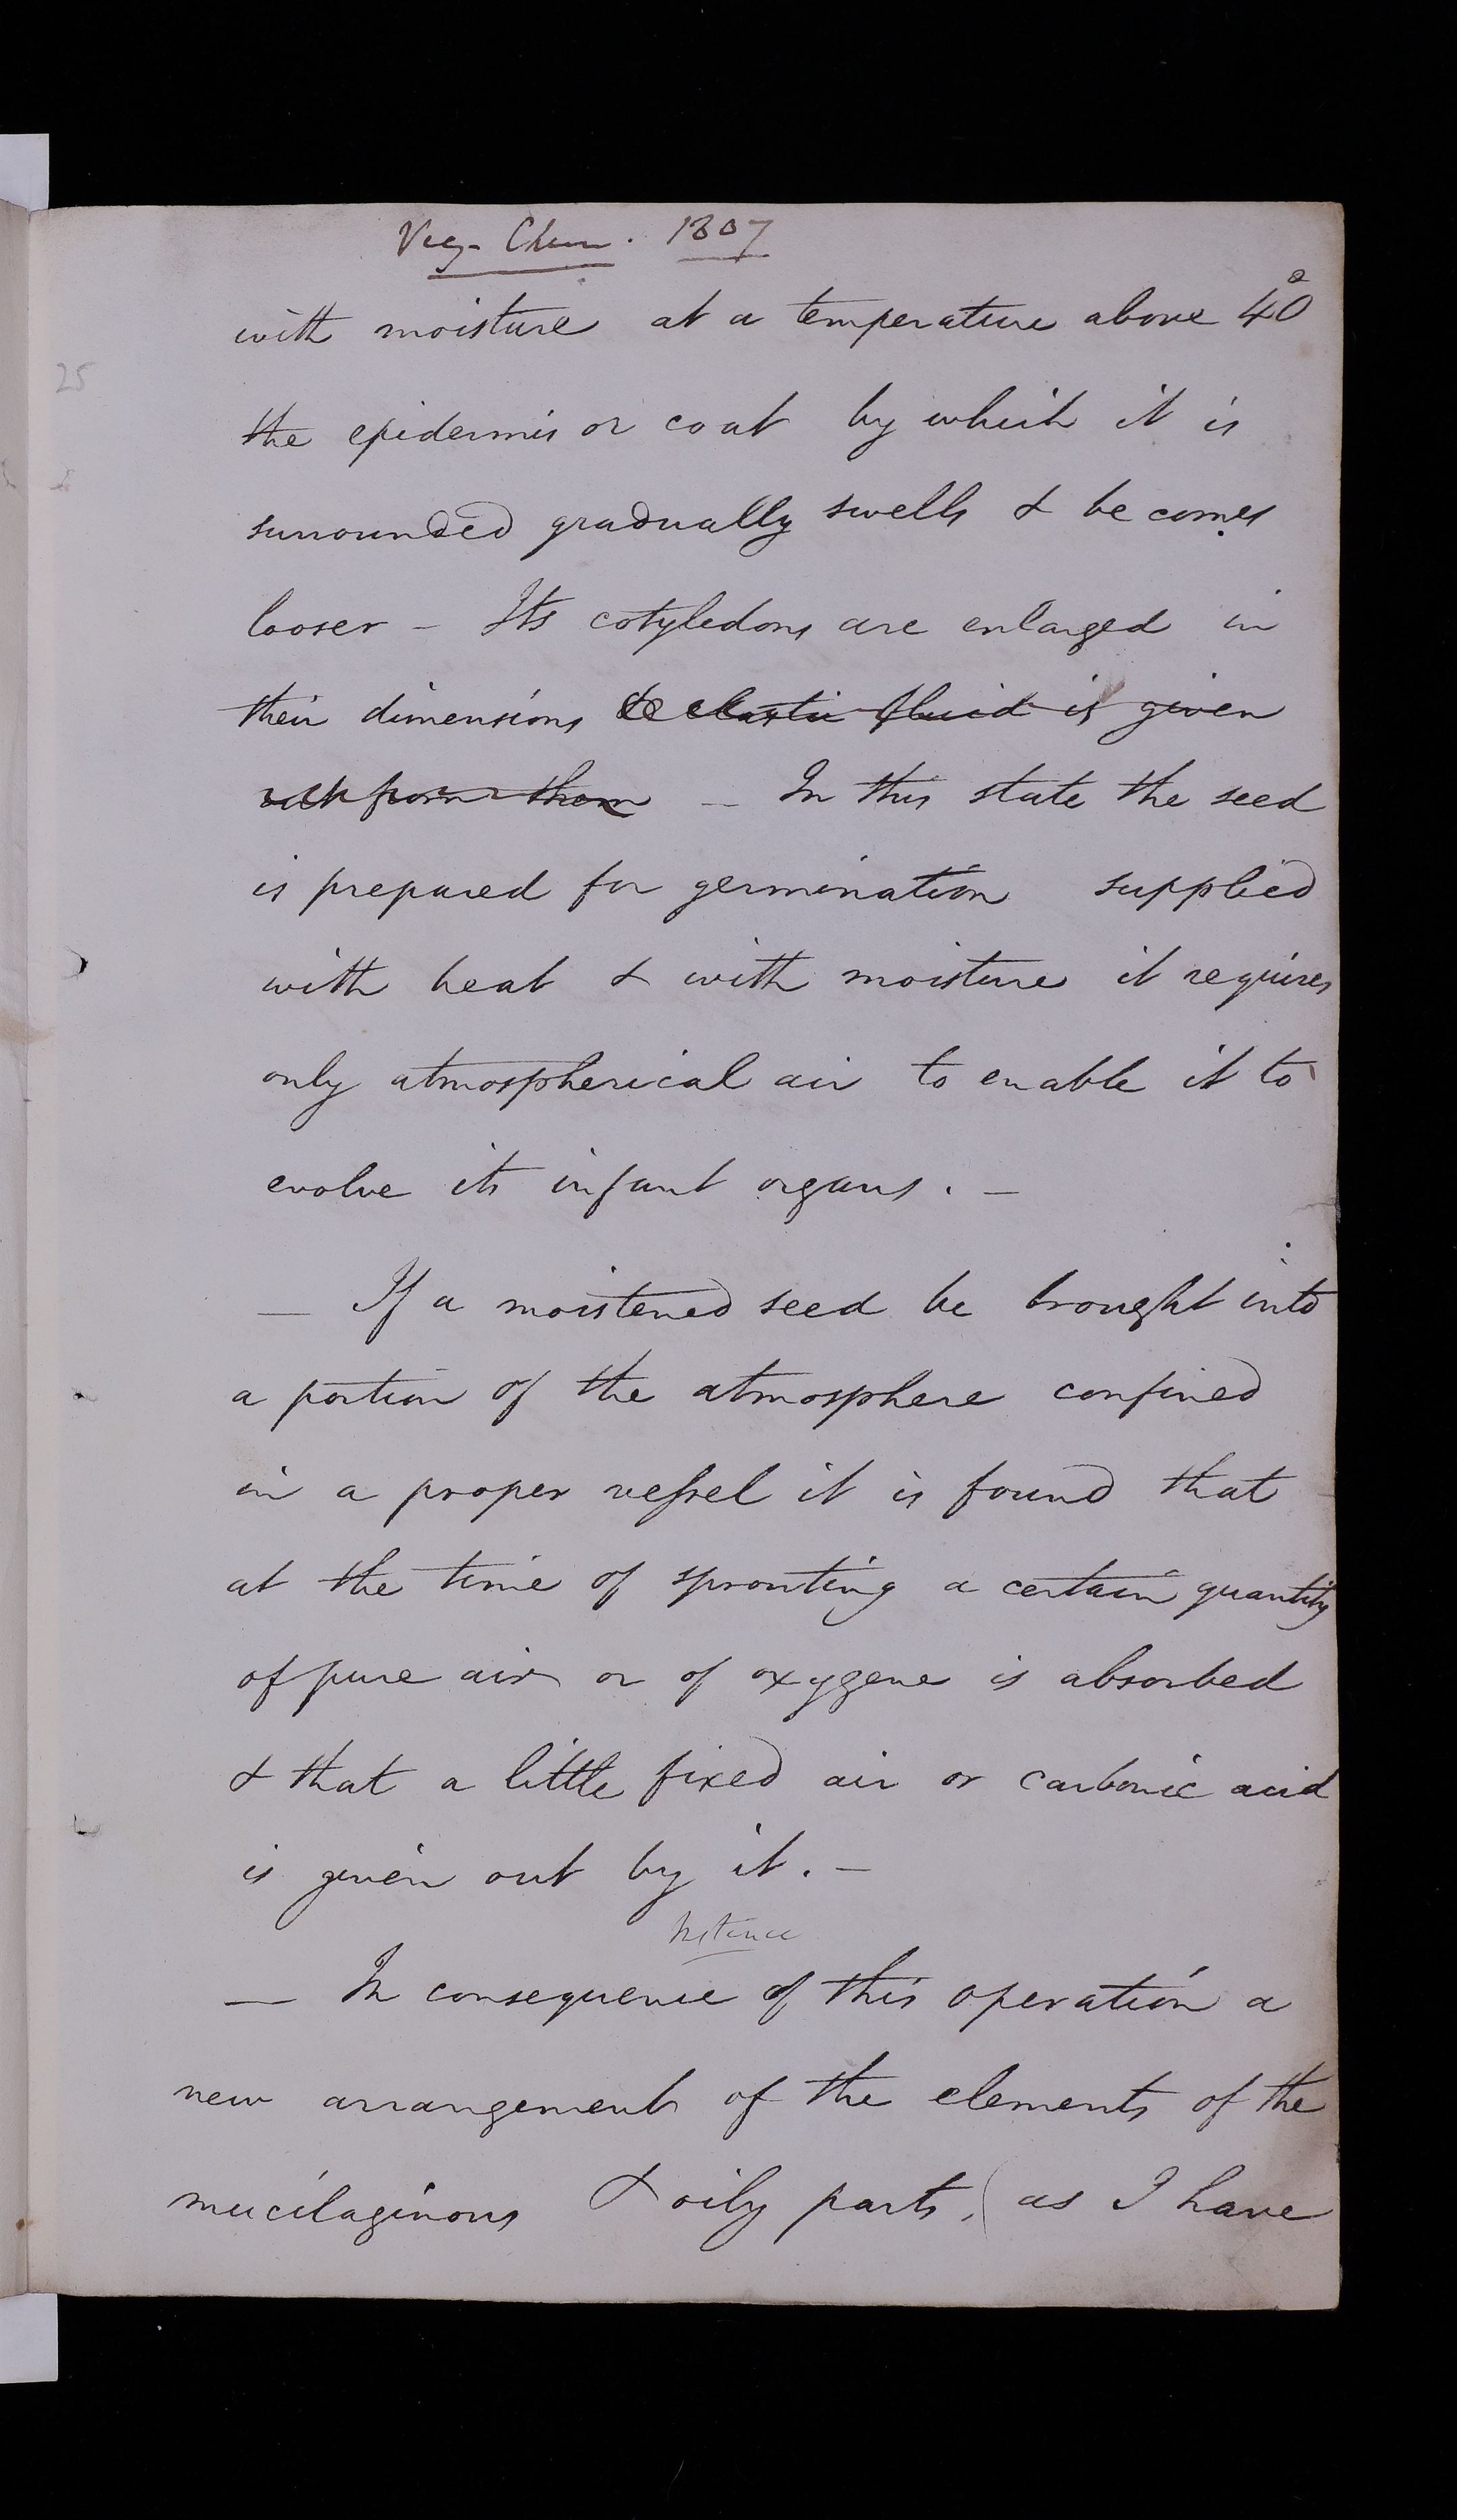 Veg. Chem. 1807
25
with moisture at a temperature above 40°
the epidermis or coat by which it is
surrounded gradually swells & becomes
looser - Its cotyledons are enlarged in
their dimensions & elastic fluid is given
out from them - In this state the seed
is prepared for germination supplied
with heat & with moisture it requires
only atmospherical air to enable it to
evolve its infant organs. -
— If a moistened seed be brought into
a portion of the atmosphere confined
in a proper veſsel it is found that
at the time of sprouting a certain quantity
of pure air or of oxygene is absorbed
& that a little fixed air or carbonic acid
is given out by it. -
— In consequence of this operation a
new arrangement of the elements of the
mucilaginous & oily parts, (as I have